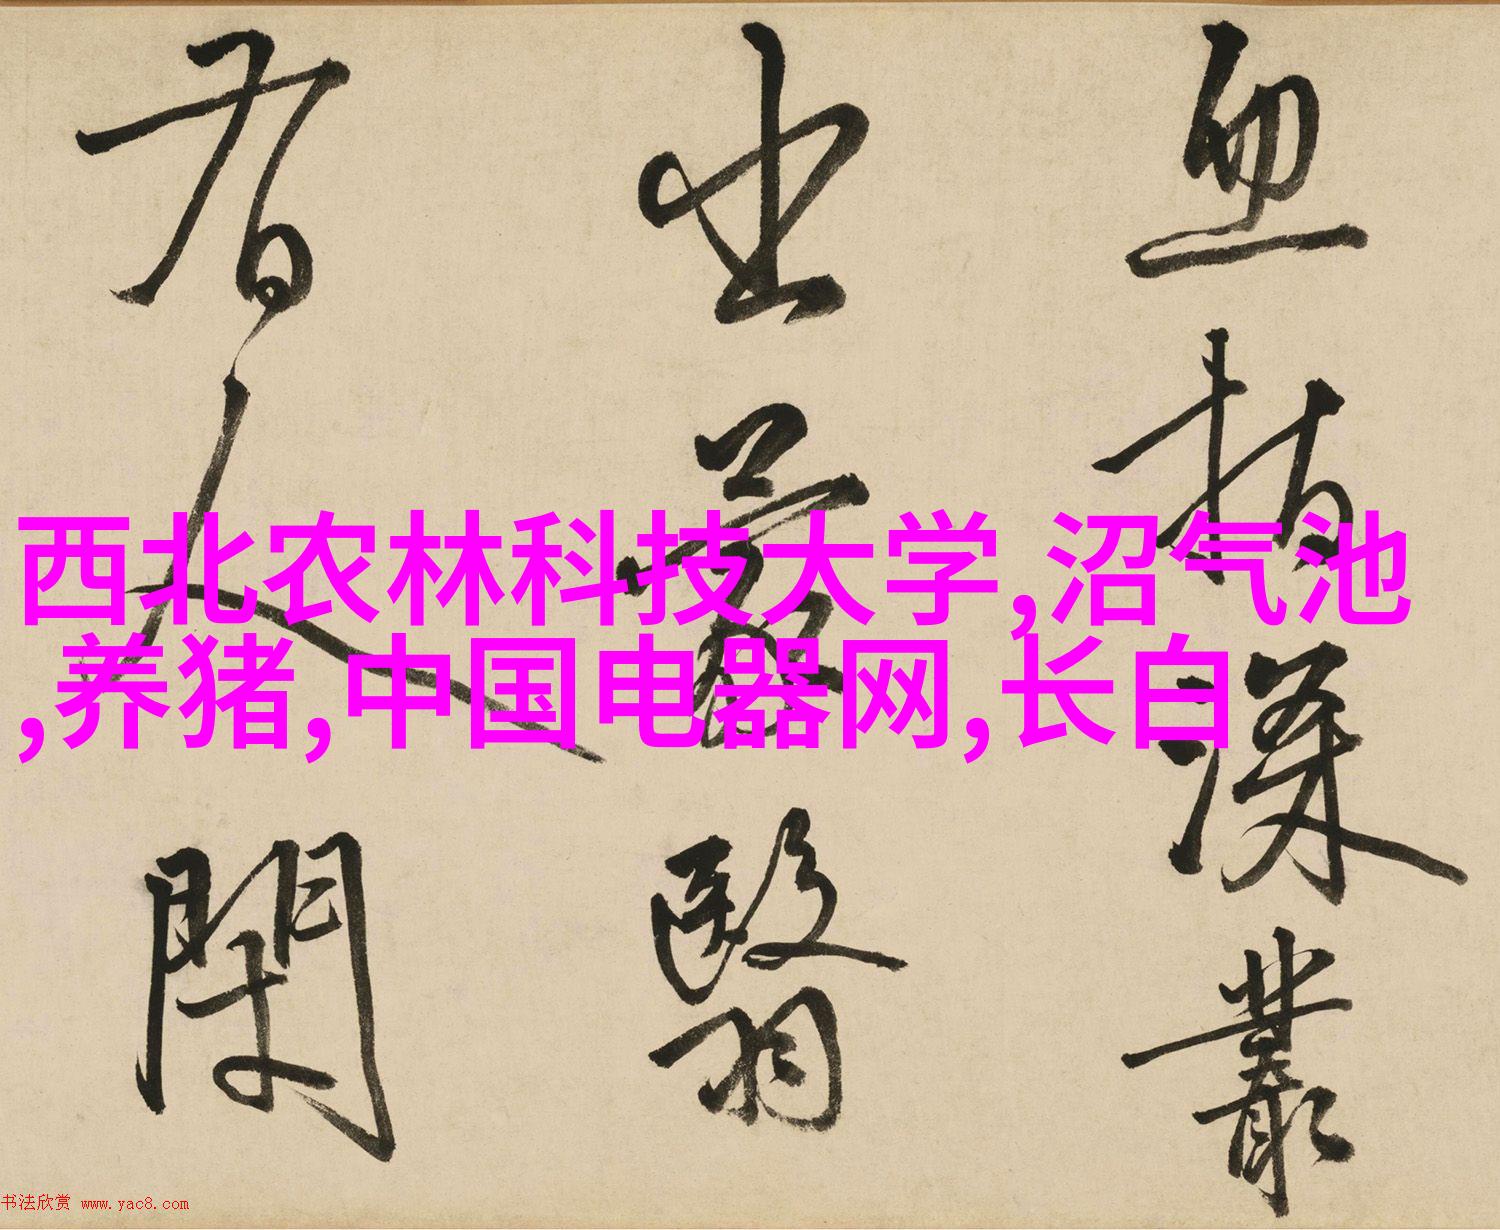 血指深叢
出蒙翳
人
西北农林科技大学,沼气池
,养猪,中国电器网,长白
书法欣赏 www.yac8.com